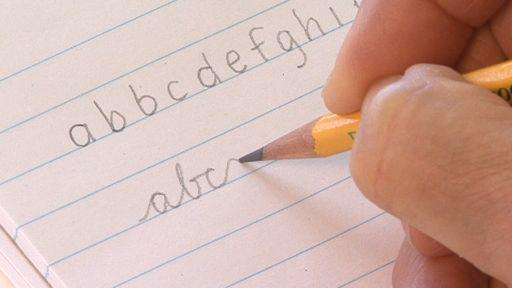 abbcdefghi
abc